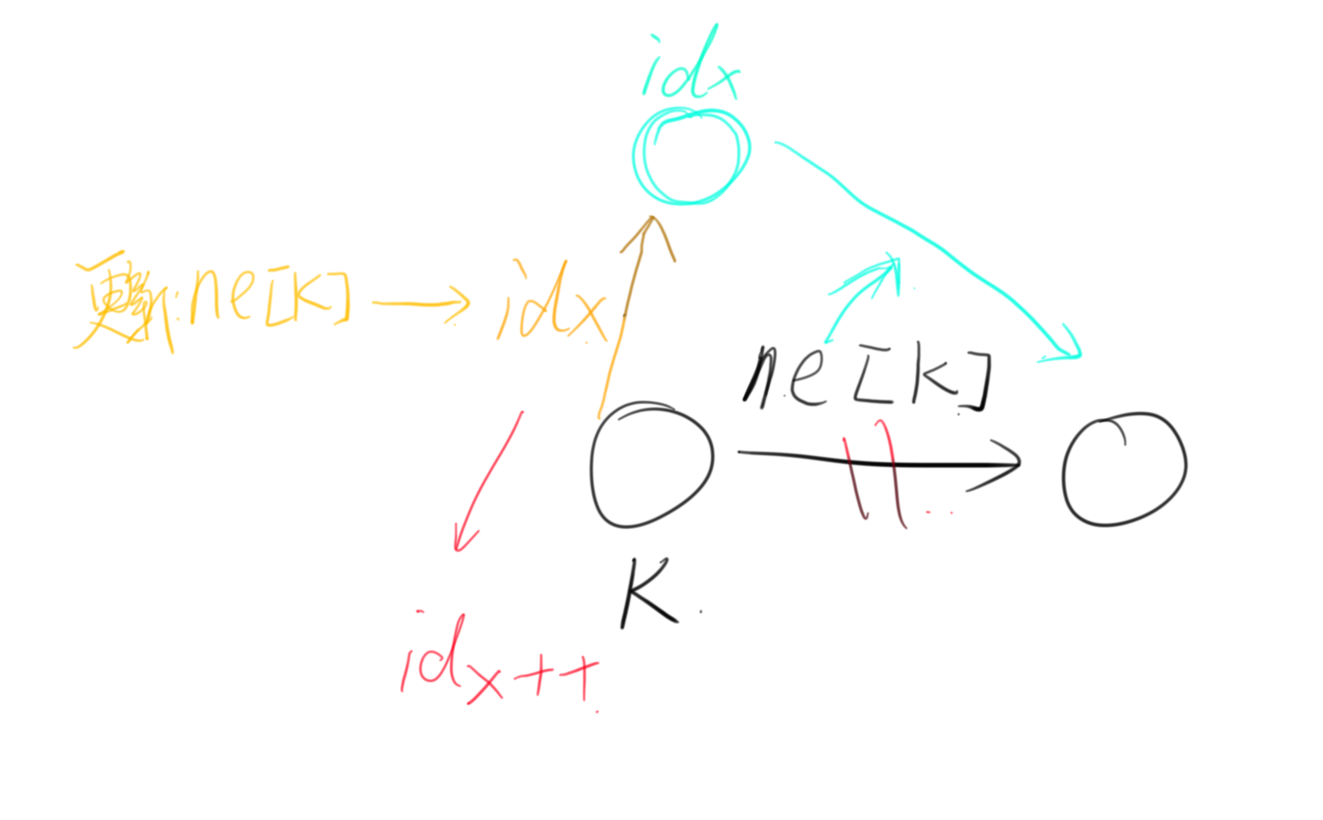 idx
更新:ne[k] → idx
ne[k]
K
idx++